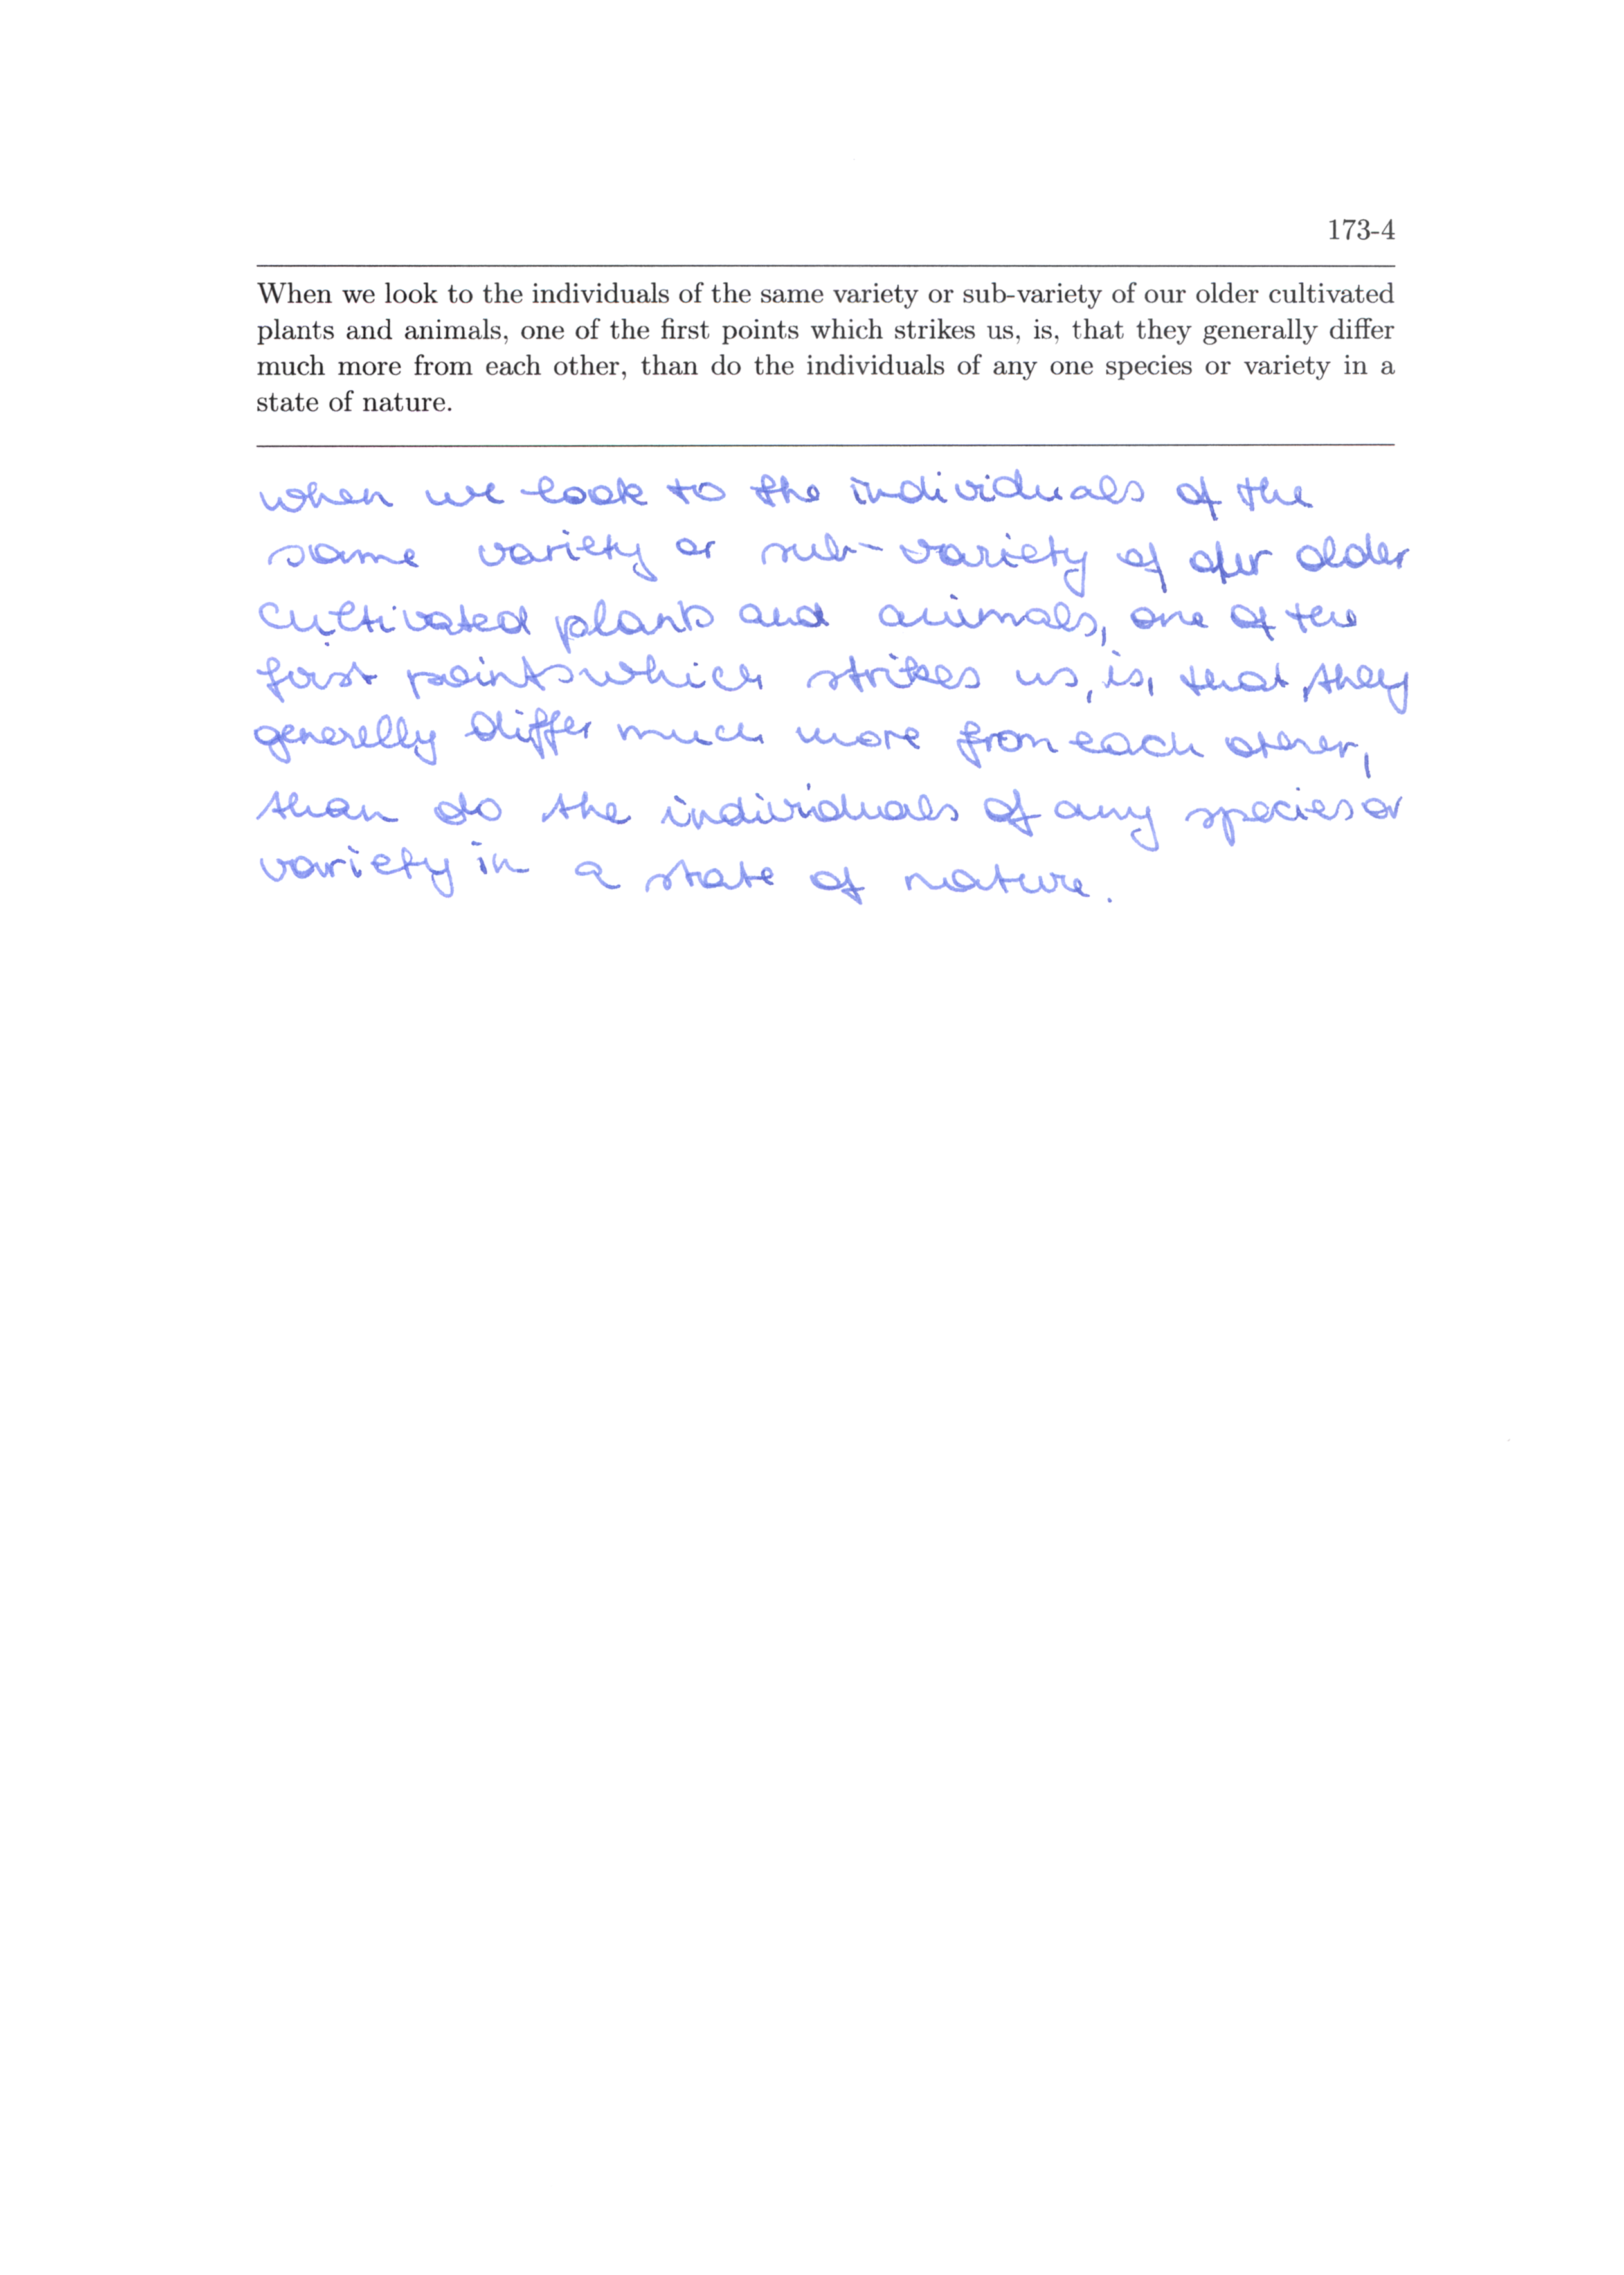 173-4
When we look to the individuals of the same variety or sub-variety of our older cultivated
plants and animals, one of the first points which strikes us, is, that they generally differ
much more from each other, than do the individuals of any one species or variety in a
state of nature.
when we look to the individuals of the
same variety or sub-variety of our older
cultivated plants and animals, one of the
first points which strikes us, is, that, they
generelly differ much more from each other,
than do the individuals of any species or
variety in a state of nature.